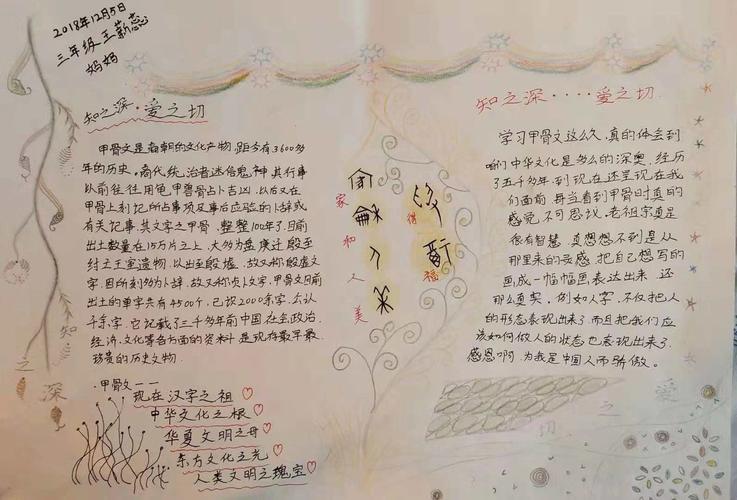 2018年12月5日
三年级王薪蕊
妈妈
知之深·爱之切
甲骨文是商朝的文化产物,距今有3600多
年的历史。商代统治者迷信鬼神,其行事
以前往往用龟甲兽骨占卜吉凶,以后又在
甲骨上刻记所占事项及事后应验的卜辞或
有关记事,其文字之甲骨,整整100年了,目前
出土数量在15万片之上,大多为盘庚迁殷至
纣王王室遗物,以出至殷墟,故又称殷虚文
字,因所刻多为卜辞,故又称贞卜文字,甲骨文目前
出土的单字共有4500个,已识2000余字,公认
千余字,它记载了三千多年前中国,在全政治,
经济,文化等各方面的资料,是现存最早最
珍贵的历史文物。
·甲骨文一一
现在汉字之祖
中华文化之根
华夏文明之母
东方文化之光
人类文明之瑰宝
家和人美
得福
知之深····爱之切
学习甲骨文这么久,真的体会到
咱们中华文化是多么的深奥,经历
了五千多年,到现在还呈现在我
们面前,每当看到甲骨时真的
感觉不可思议,老祖宗真是
很有智慧,真想想不到是从
那里来的灵感,把自己想写的
画成一幅幅画表达出来,还
那么真实,例如人字,不仅把人
的形态表现出来了,而且把我们应
该如何做人的状态也表现出来了,
感恩啊,为我是中国人而骄傲。
知之深
爱之切